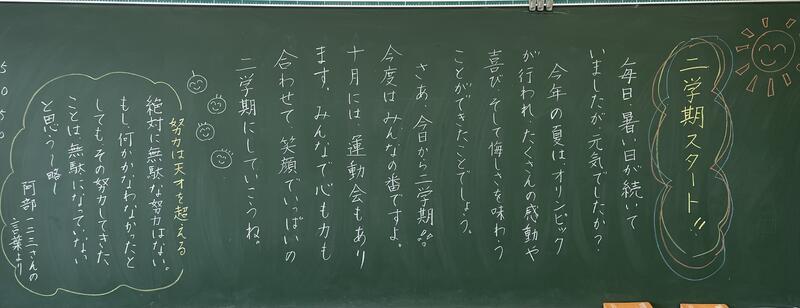 二学期スタート!!
毎日、暑い日が続いて
いましたが、元気でしたか？
今年の夏は、オリンピック
が行われ、たくさんの感動や
喜び、そして悔しさを味わう
ことができたことでしょう。
さあ、今日から二学期
今度はみんなの番ですよ。
十月には、運動会もあり
ます。みんなで心も力も
合わせて、笑顔でいっぱいの
二学期にしていこうね。
努力は天才を超える
絶対に無駄な努力はない。
もし何かかなわなかったと
しても、その努力してきた
ことは無駄になっていない
と思う〜略〜
阿部一二三さんの
言葉より
5050